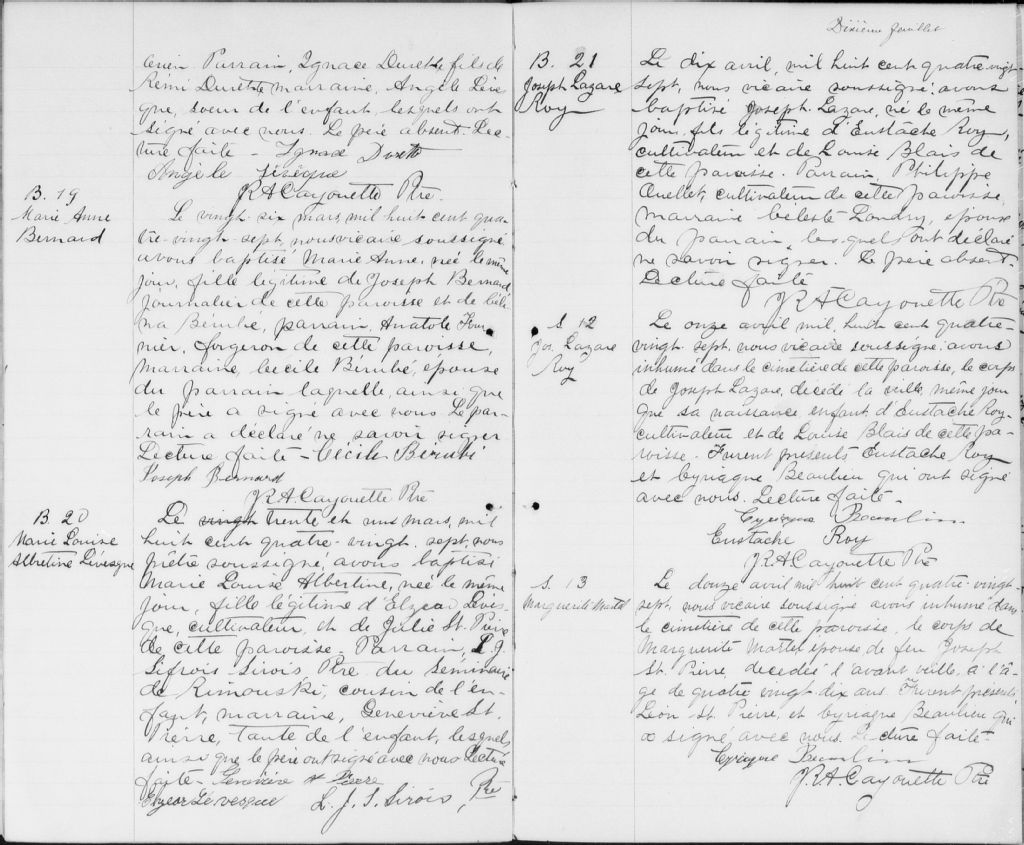 Parrain, Ignace Durette fils de
Rémi Durette marraine, Angèle Léves-
que, soeur de l'enfant lesquels ont
signé avec nous. Le père absent. Lec-
ture faite - Ignace Durette
Angèle Lévesque
J.R.A. Cayouette Ptre.
B. 19
Marie Anne
Bernard
Le vingt-six mars, mil huit cent qua-
tre-vingt-sept, nous vicaire soussigné
avons baptisé Marie Anne, née le même
jour, fille légitime de Joseph Bernard
journalier de cette paroisse et de Céli-
na Bérubé, parrain, Anatole Four-
nier, forgeron de cette paroisse,
marraine, Cécile Bérubé, épouse
du parrain laquelle, ainsi que
le père a signé avec nous. Le par-
rain a déclaré ne savoir signer
Lecture faite - Cécile Bérubé
Joseph Bernard
J.R.A. Cayouette Ptre
B. 20
Marie Louise
Albertine Lévesque
Le vingt trente et un mars, mil
huit cent quatre-vingt-sept, nous
prêtre soussigné, avons baptisé
Marie Louise Albertine, née le même
jour, fille légitime d'Elzear Léves-
que, cultivateur, et de Julie St. Pierre
de cette paroisse. Parrain, L. J.
Sifrois Sirois Ptre du Séminaire
de Rimouski, cousin de l'en-
fant, marraine, Geneviève St.
Pierre, tante de l'enfant, lesquels
ainsi que le père ont signé avec nous Lecture
faite - Geneviève St Pierre
Elzear Lévesque L. J. S. Sirois, Ptre
Dixième feuillet
B. 21
Joseph Lazare
Roy
Le dix avril, mil huit cent quatre-vingt-
sept, nous vicaire soussigné avons
baptisé Joseph Lazare, né le même
jour, fils légitime d'Eustache Roy,
cultivateur et de Louise Blais de
cette paroisse. Parrain, Philippe
Ouellet, cultivateur de cette paroisse,
marraine Céleste Landry, épouse
du parrain, lesquels ont déclaré
ne savoir signer. Le père absent.
Lecture faite
J.R.A. Cayouette Ptre
S. 12
Jos. Lazare
Roy
Le onze avril mil huit cent quatre-
vingt-sept, nous vicaire soussigné avons
inhumé dans le cimetière de cette paroisse, le corps
de Joseph Lazare, décédé la veille, même jour
que sa naissance enfant d'Eustache Roy
cultivateur et de Louise Blais de cette pa-
roisse. Furent présents Eustache Roy
et Cyriaque Beaulieu qui ont signé
avec nous. Lecture faite -
Cyriaque Beaulieu
Eustache Roy
J.R.A. Cayouette Ptre
S. 13
Marguerite Martel
Le douze avril mil huit cent quatre-vingt-
sept, nous vicaire soussigné avons inhumé dans
le cimetière de cette paroisse, le corps de
Marguerite Mattel épouse de feu Joseph
St. Pierre, décédée l'avant veille, à l'â-
ge de quatre vingt dix ans. Furent présents
Léon St. Pierre, et Cyriaque Beaulieu qui
a signé avec nous. Lecture faite -
Cyriaque Beaulieu
J.R.A. Cayouette Ptre